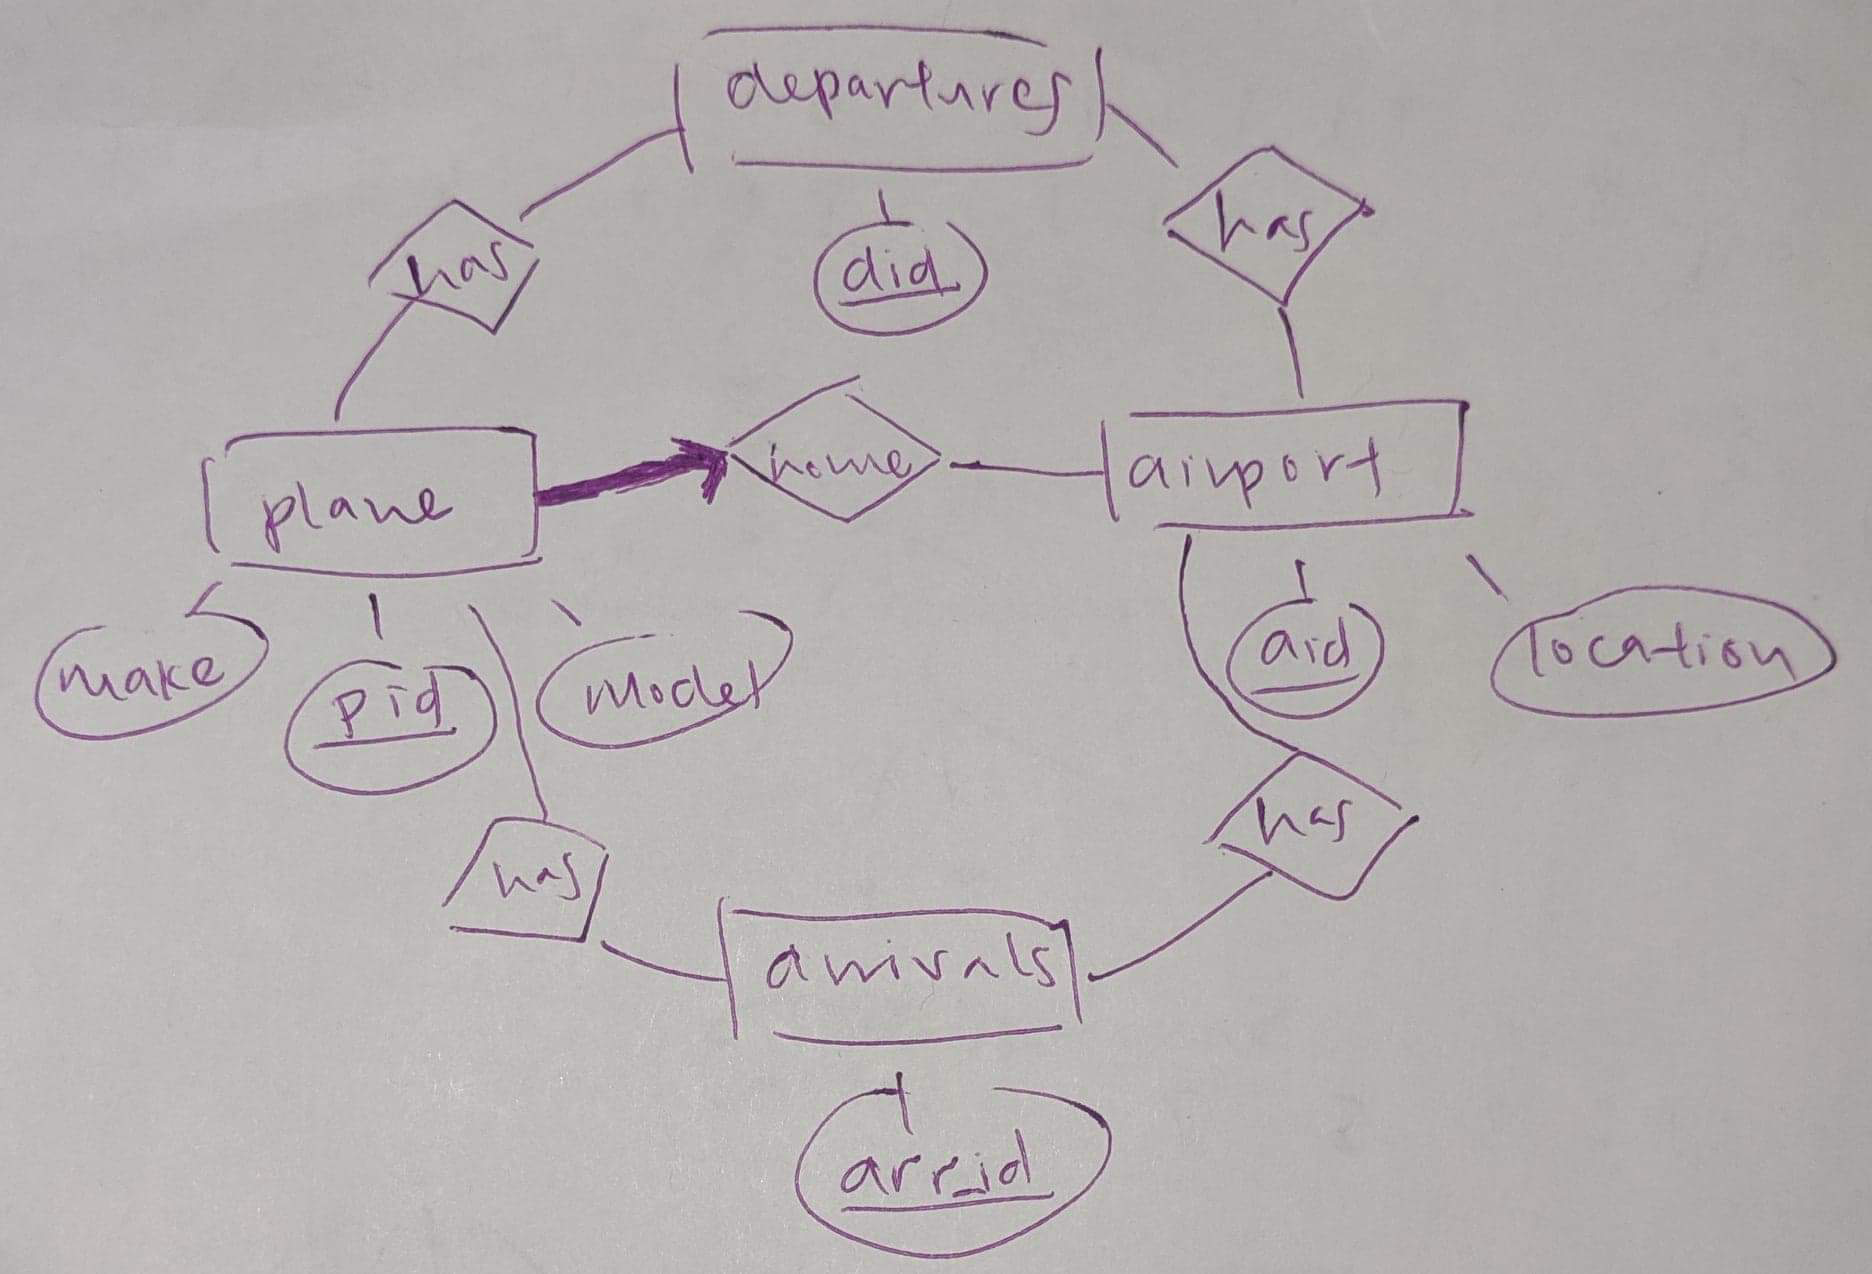 departures
has
has
did
plane
home
airport
make
pid
model
aid
location
has
has
arrivals
arr_id